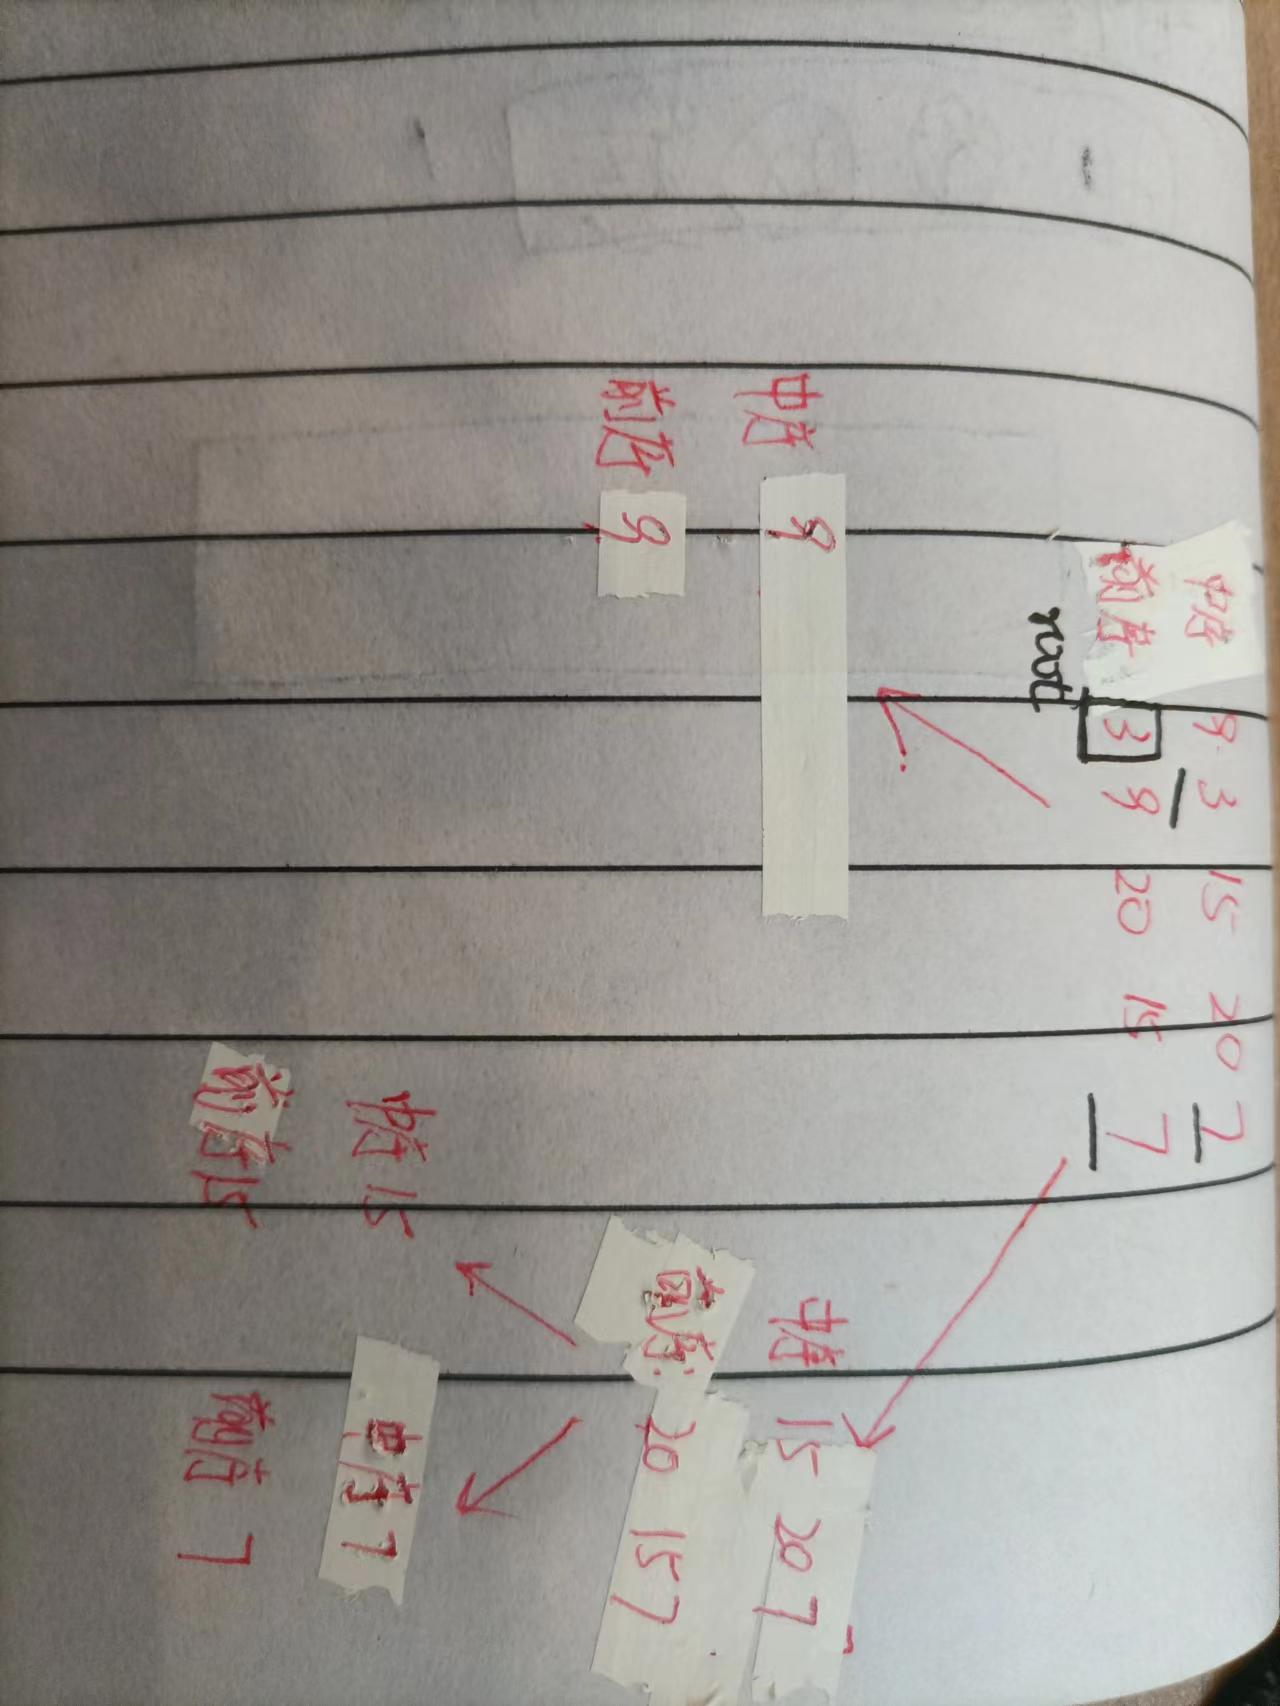 中序 9 3 15 20 7
前序 3 9 20 15 7
root
中序 9
前序 9
中序 15 20 7
前序: 20 15 7
中序 15
前序 15
中序 7
前序 7